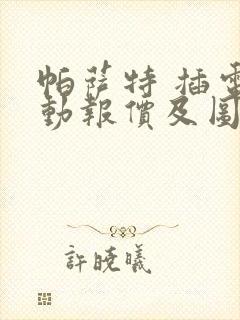 帕萨特 插電
動報價及圖
許曉曦